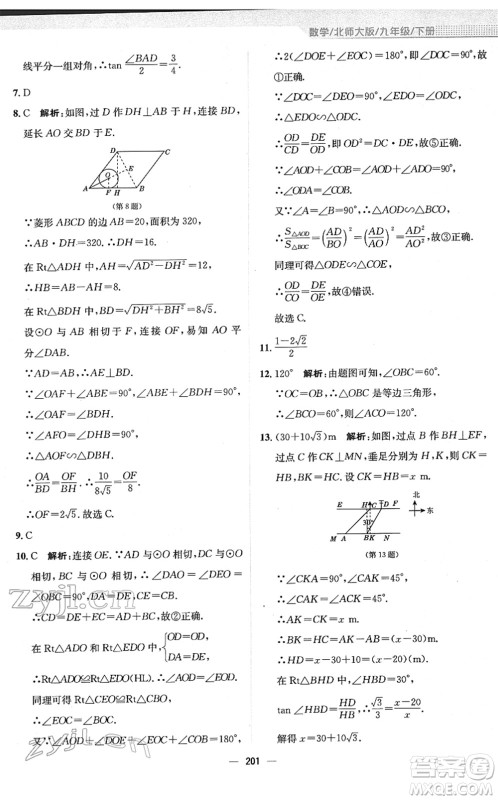 数学/北师大版/九年级/下册
线平分一组对角,∴tan ∠BAD/2=3/4.
7. D
8. C 解析:如图,过 D 作 DH⊥AB 于 H,连接 BD,
延长 AO 交 BD 于 E.
D C O E A F H B
(第 8 题)
∵菱形 ABCD 的边 AB=20,面积为 320,
∴AB·DH=320.∴DH=16.
在 Rt△ADH 中,AH=√(AD²-DH²)=12,
∴HB=AB-AH=8.
在 Rt△BDH 中,BD=√(DH²+BH²)=8√5.
设⊙O 与 AB 相切于 F,连接 OF,易得 AO 平
分∠DAB.
∵AD=AB,∴AE⊥BD.
∵∠OAF+∠ABE=90°,∠ABE+∠BDH=90°,
∴∠OAF=∠BDH.
∵∠AFO=∠DHB=90°,
∴△AOF∽△DBH.
∴OA/BD=OF/BH.∴10/8√5=OF/8.
∴OF=2√5.故选 C.
9. C
10. C 解析:连接 OE.∵AD 与⊙O 相切,DC 与⊙O
相切,BC 与⊙O 相切,∴∠DAO=∠DEO=
∠OBC=90°,DA=DE,CE=CB,AD∥BC.
∴CD=DE+EC=AD+BC.∴②正确.
在 Rt△ADO 和 Rt△EDO 中,{OD=OD, DA=DE,
∴Rt△ADO≌Rt△EDO(HL).∴∠AOD=∠EOD.
同理可得 Rt△CEO≌Rt△CBO,
∴∠EOC=∠BOC.
又∵∠AOD+∠DOE+∠EOC+∠COB=180°,
∴2(∠DOE+∠EOC)=180°,即∠DOC=90°.
∴⑤正确.∴∠DOC=∠DEO=90°.
又∵∠EDO=∠ODC,
∴△EDO∽△ODC.
∴OD/CD=DE/OD,即 OD²=DE·CD,故①正确.
∵∠AOD+∠COB=∠AOD+∠ADO=90°,
∴∠A=∠B=90°.∴△AOD∽△BCO.
∴S△AOD/S△BOC=(AD/BO)²=(AD/AO)²=AD²/AO².∴③正确.
同理可得△ODE∽△OEC.
∴OD/CO=DE/OE,故④不正确.
故选 C.
11. (1-2√2)/2
12. 120° 解析:由题图可知,∠OBC=60°.
∵OB=OC,∴△OBC 是等边三角形,
∴∠BOC=60°,
∴∠AOC=180°-∠BOC=180°-60°=120°.
13. (30+10√3) m 解析:如图,过点 B 作 BH⊥EF,
过点 C 作 CK⊥MN,垂足分别为点 H,K,则
BK=HC.设 CK=HB=x m.
E H C D F 北 东 30° M A B K N
(第 13 题)
∵∠CKA=90°,∠CAK=45°,
∴∠CAK=∠ACK=45°.
∴AK=CK=x m.
∴HD=x-30+10=(x-20)m.
在 Rt△BHD 中,∵∠HBD=30°,
tan ∠HBD=HD/HB,∴√3/3=(x-20)/x.
解得 x=30+10√3.
201
zyjl.cn
zyjl.cn